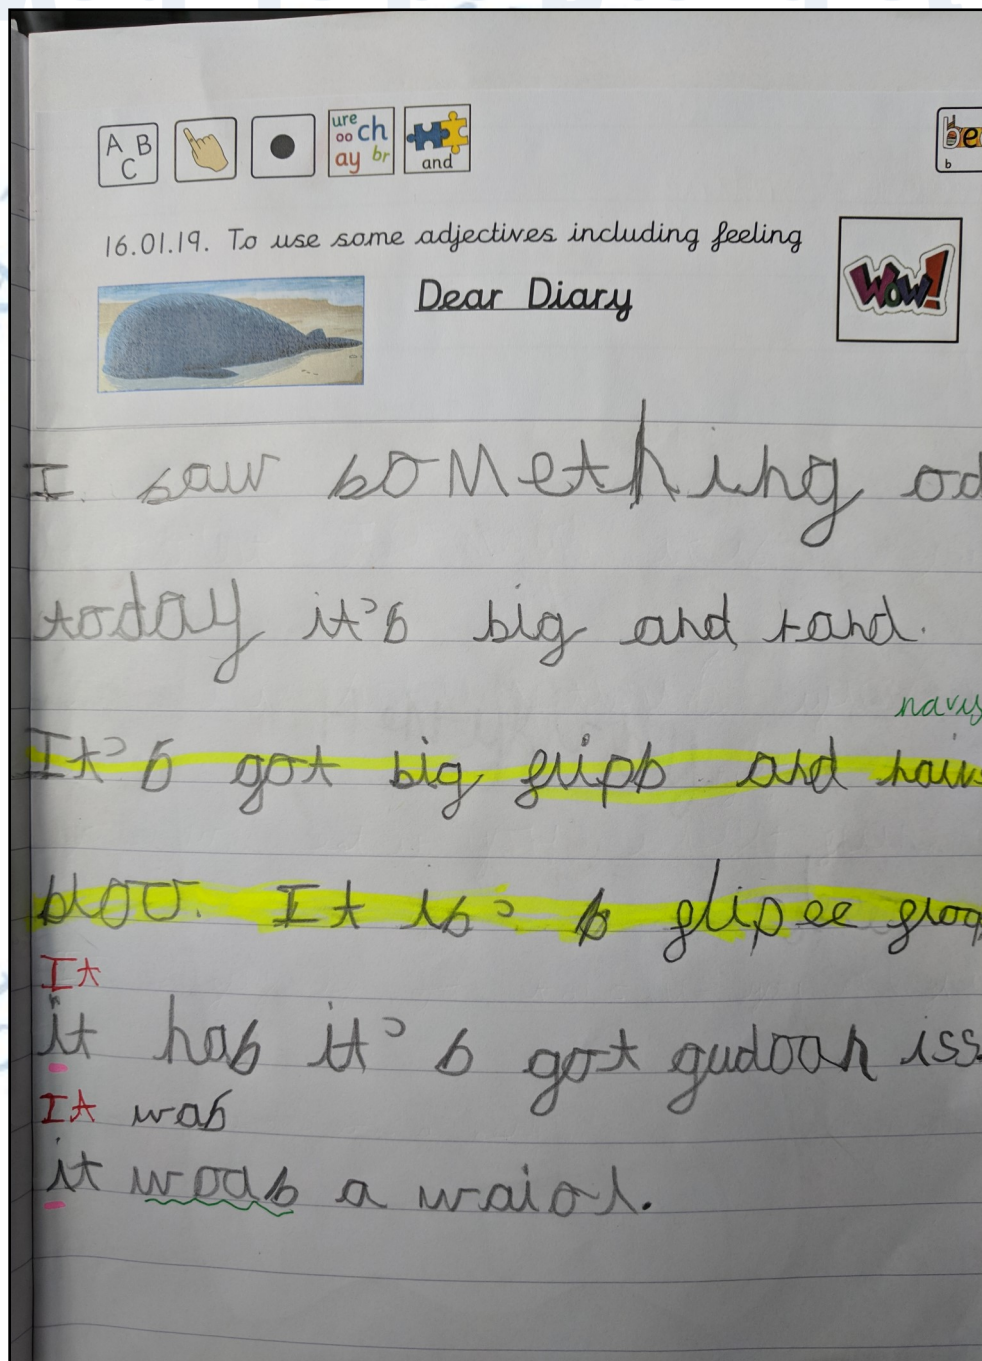 A B C
ure oo ch ay br
and
b
16.01.19. To use some adjectives including feeling
Wow!
Dear Diary
I saw something
today it's big and rand.
navy
It's got big flips and
blow. It is's s glipee
It
it has it's got gudooh iss
It was
it woas a waiol.